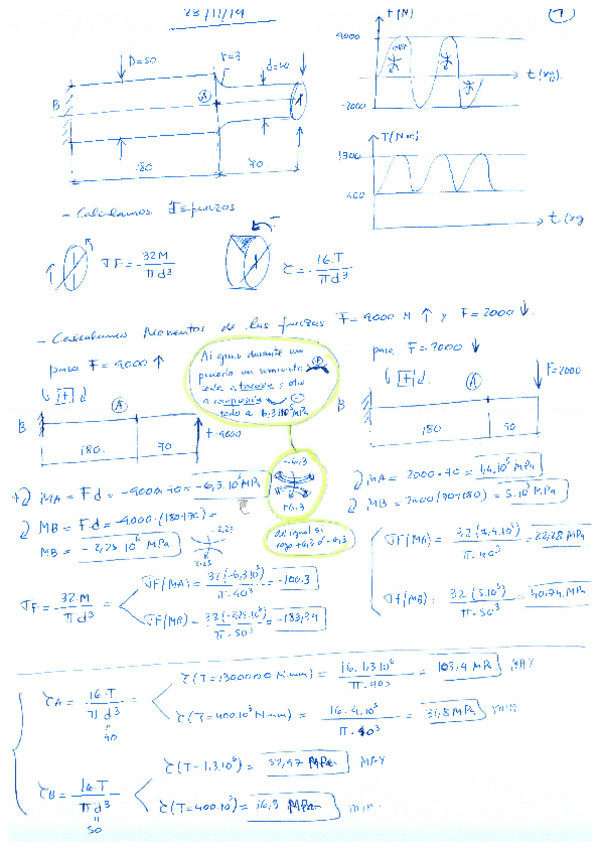 28/11/19
F(N)
9000
-2000
t(sg)
D=50
r=3
d=40
B
A
180
70
T(N·m)
1300
400
t(sg
- Calculamos Esfuerzos
σF = 32M / πd³
τ = 16·T / πd³
- Calculamos Momentos de las fuerzas F=9000 N ↑ y F=2000 ↓
para F=9000 ↑
F=2000 ↓
Al girar durante un
periodo un momento
todo a 6,3·10⁵ MPa
B
A
180
70
F=9000
-6,3
+6,3
B
A
180
F=2000
MA = Fd = -9000·70 = -6,3·10⁵ MPa
MB = Fd = -9000·(180+70) =
MB = -2,25·10⁶ MPa
-2,25
2,25
MA = 2000·70 = 1,4·10⁵ MPa
MB = 2000(70+180) = 5·10⁵ MPa
σF = 32·M / πd³
σF(MA) = 32(-6,3·10⁵) / π·40³ = -100,3
σF(MB) = 32(-2,25·10⁶) / π·50³ = -183,34
σF(MA) = / π·40³ = 22,28 MPa
σF(MB) = 32(5·10⁵) / π·50³ = 40,74 MPa
τA = 16·T / πd³
40
τ(T=1300000 N·mm) = 16·1,3·10⁶ / π·40³ = 103,4 MPa MAX
τ(T=400·10³ N·mm) = 16·4·10⁵ / π·40³ = 31,8 MPa min
τB = 16·T / πd³
50
τ(T=1,3·10⁶) = 52,97 MPa MAX
τ(T=400·10³) = 16,3 MPa min.